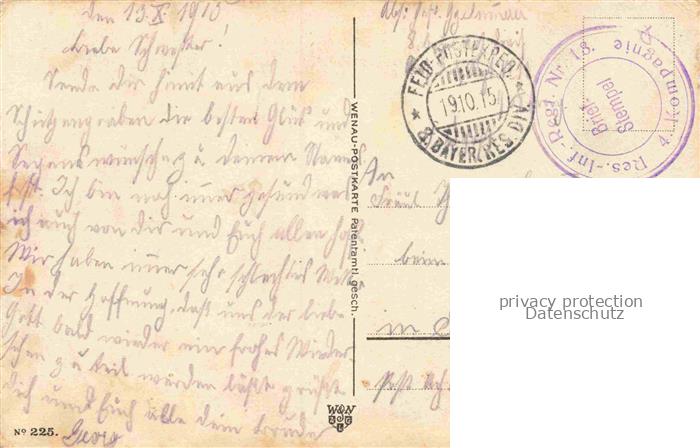 den 13.X.1915
Liebe Schwester!
Sende dir hiemit aus dem
Schützengraben die besten Glück und
Segenswünsche zu deinem Namens
fest. Ich bin noch immer gesund was
ich auch von dir und Euch allen hoffe
Wir haben immer sehr schlechtes Wetter
In der Hoffnung, daß uns der liebe
Gott bald wieder ein frohes Wieder
sehen zu teil werden läßt grüßt
dich und Euch alle dein Bruder
Georg
No 225.
WENAU-POSTKARTE Patentamtl. gesch.
FELD-POSTEXPED.
19.10.15
8. BAYER. RES. DIV.
Res.-Inf.-Regt. Nr. 18.
4. Kompagnie
Brief
Stempel
An
Fräul
beim
in
Post
privacy protection
Datenschutz